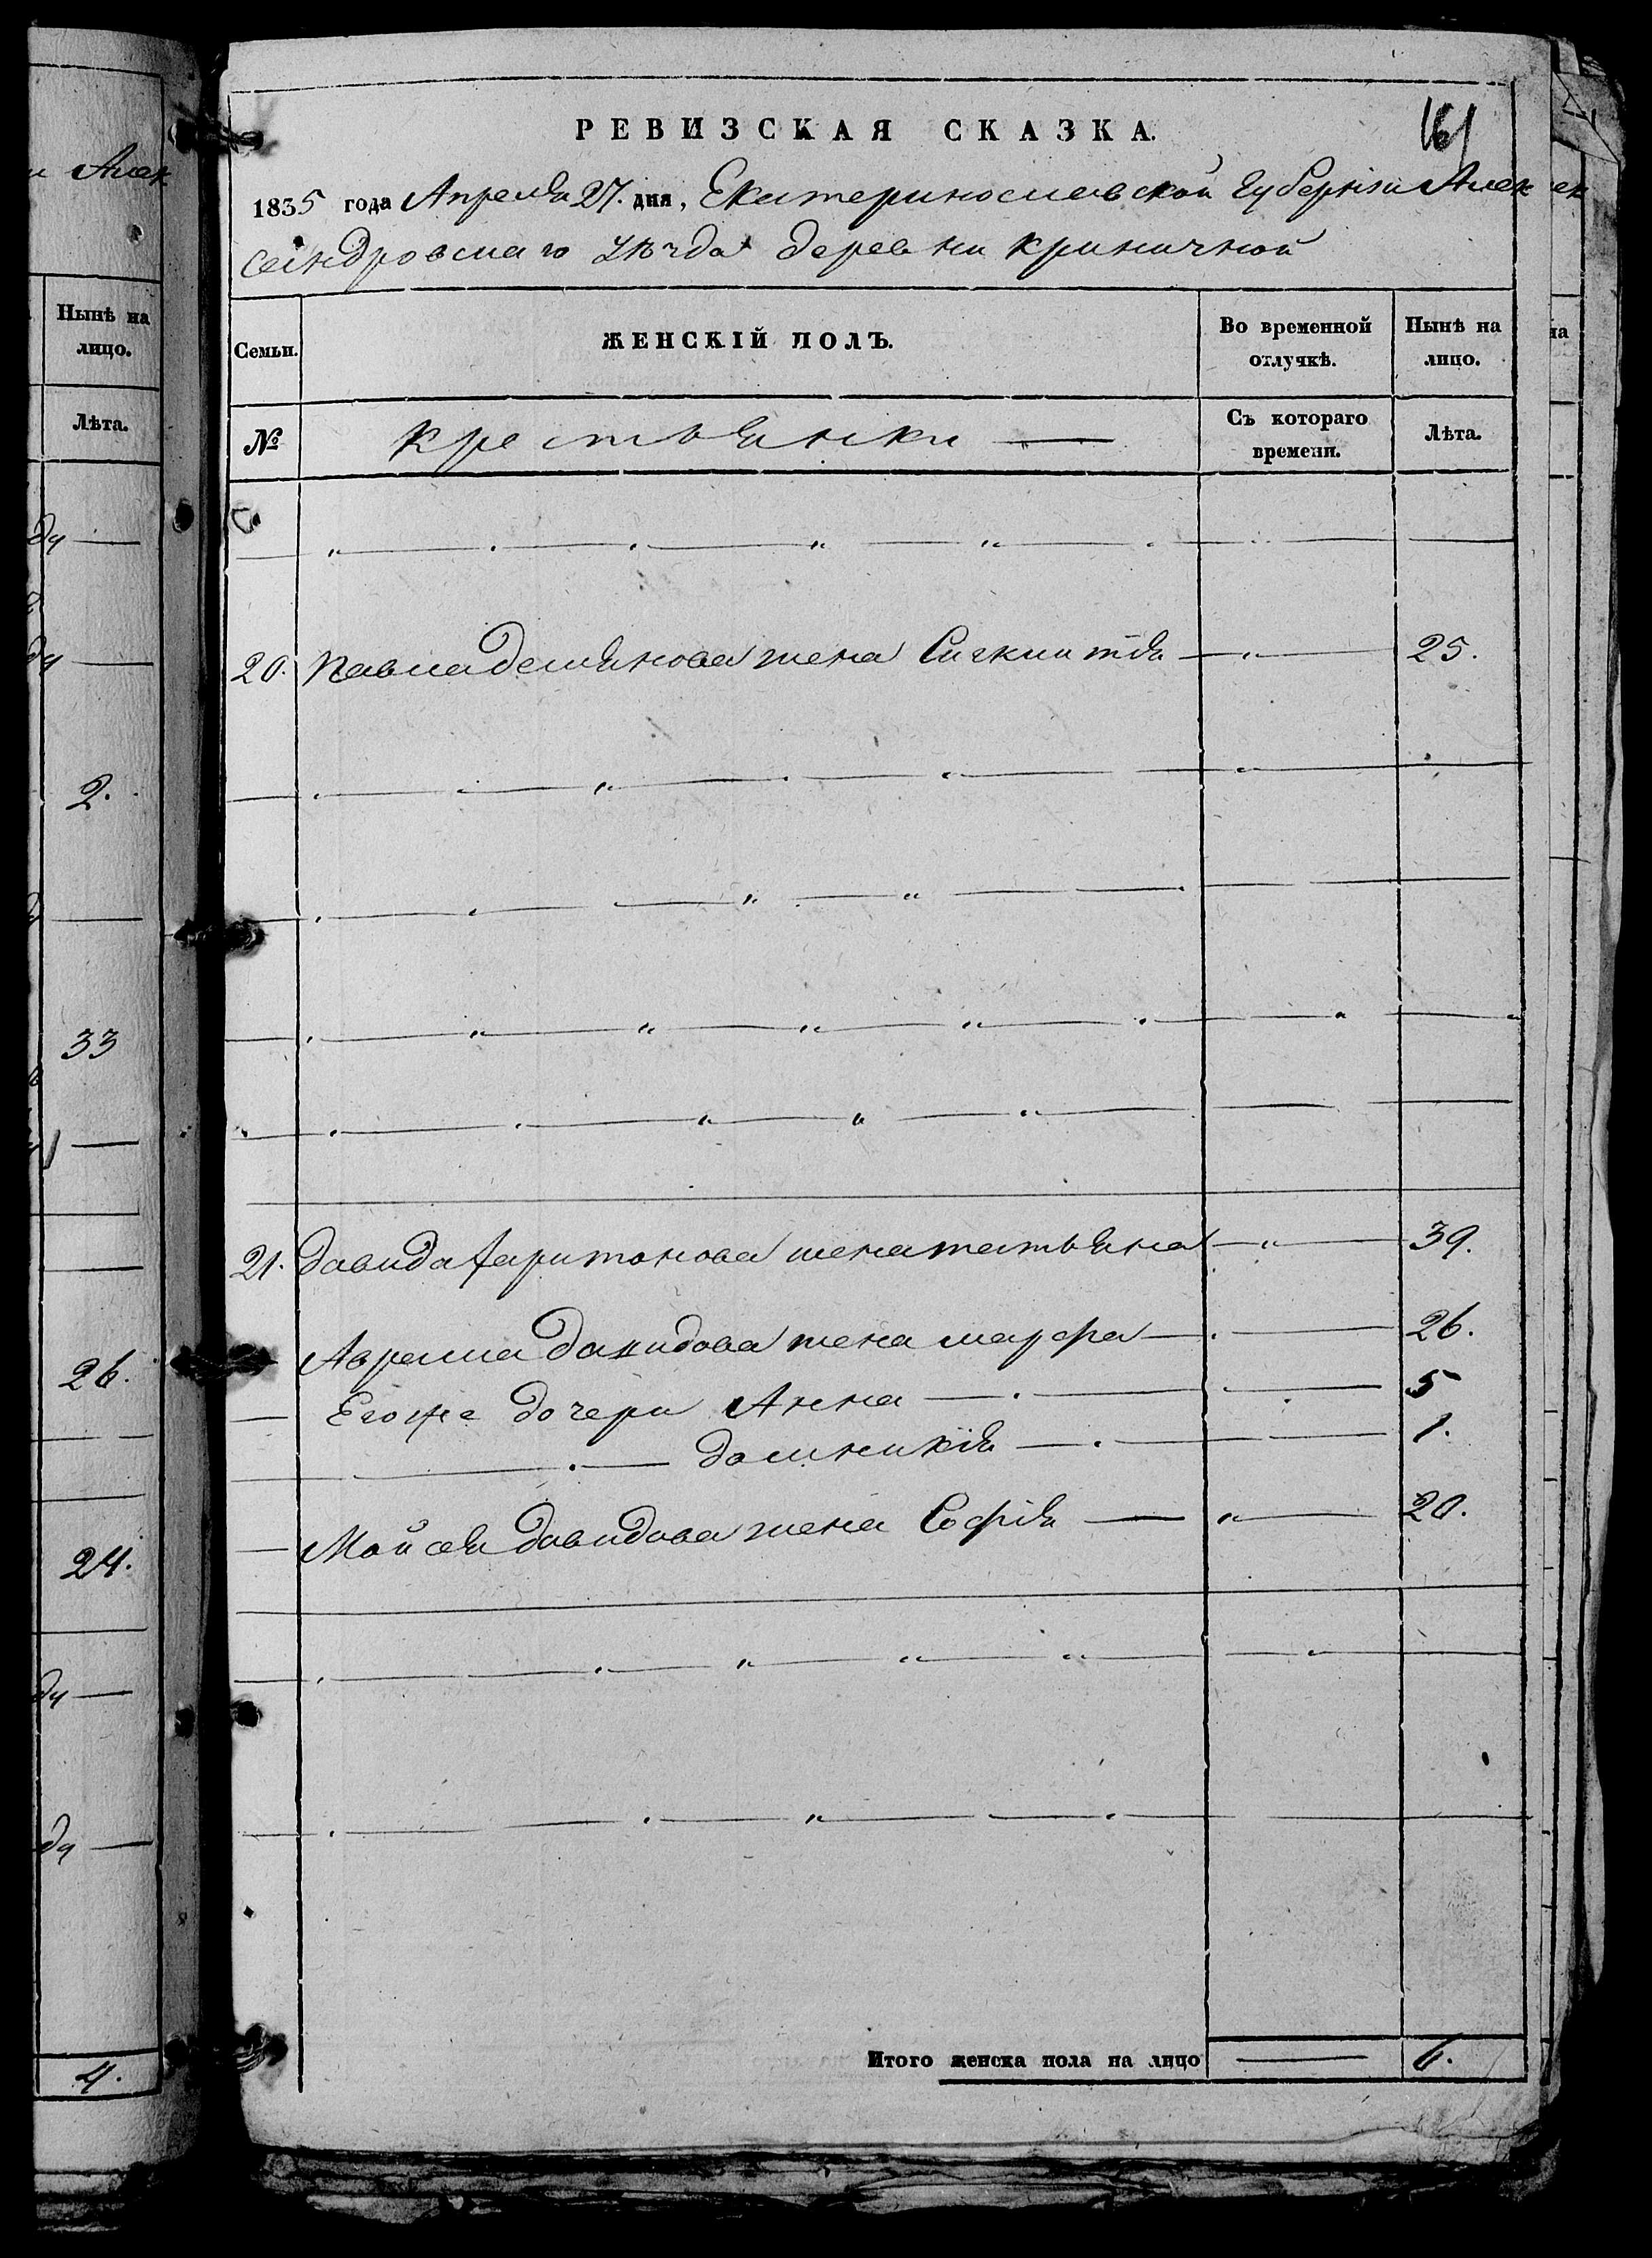 Алек
Нынѣ на
лицо.
Лѣта.
2.
33
26.
24.
4.
РЕВИЗСКАЯ СКАЗКА.
161
1835 года Апреля 27. дня, Екатеринославской Губерніи Алек
сандровскаго Уѣзда деревни криничной
Семьи. ЖЕНСКІЙ ПОЛЪ. Во временной отлучкѣ. Нынѣ на лицо.
№ крестьянки — Съ котораго времени. Лѣта.
20. Павла демьянова жена — „ — 25.
21. давида харитонова жена татьяна — „ — 39.
Аврама давидова жена марфа — 26.
Егоже дочери Анна — 5
— домникія — 1.
Мойсея давидова жена Софія — „ — 20.
Итого женска пола на лицо — 6.